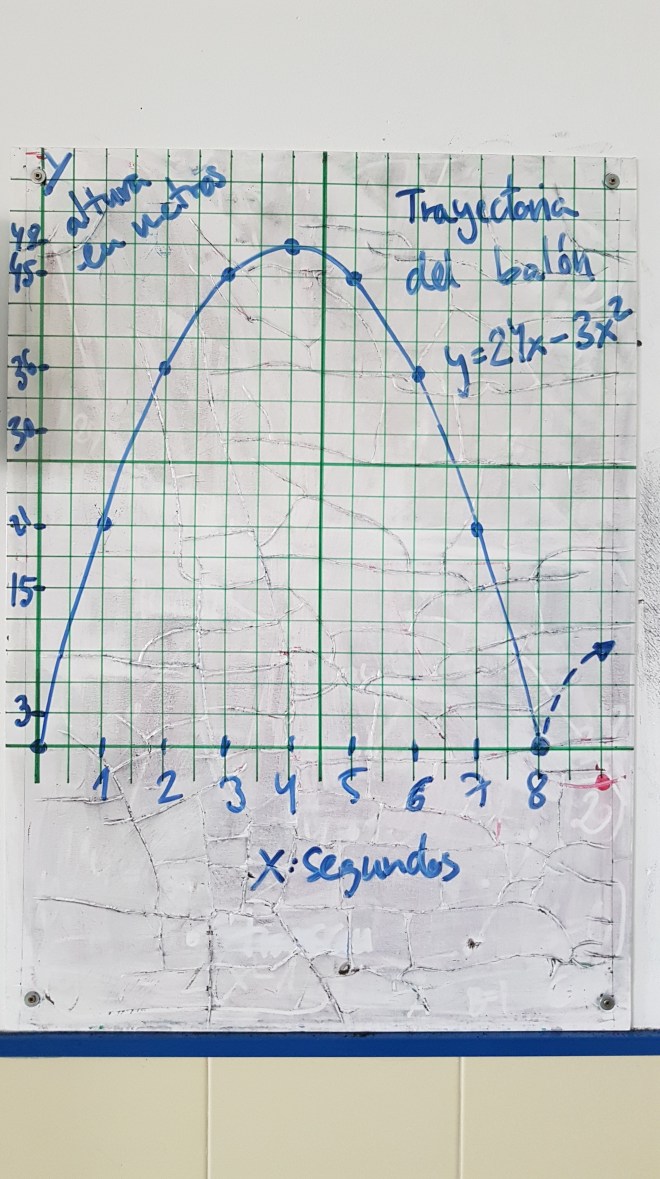 y
altura
en metros
Trayectoria
del balón
y=24x-3x²
48
45
36
30
21
15
3
1 2 3 4 5 6 7 8
x: segundos